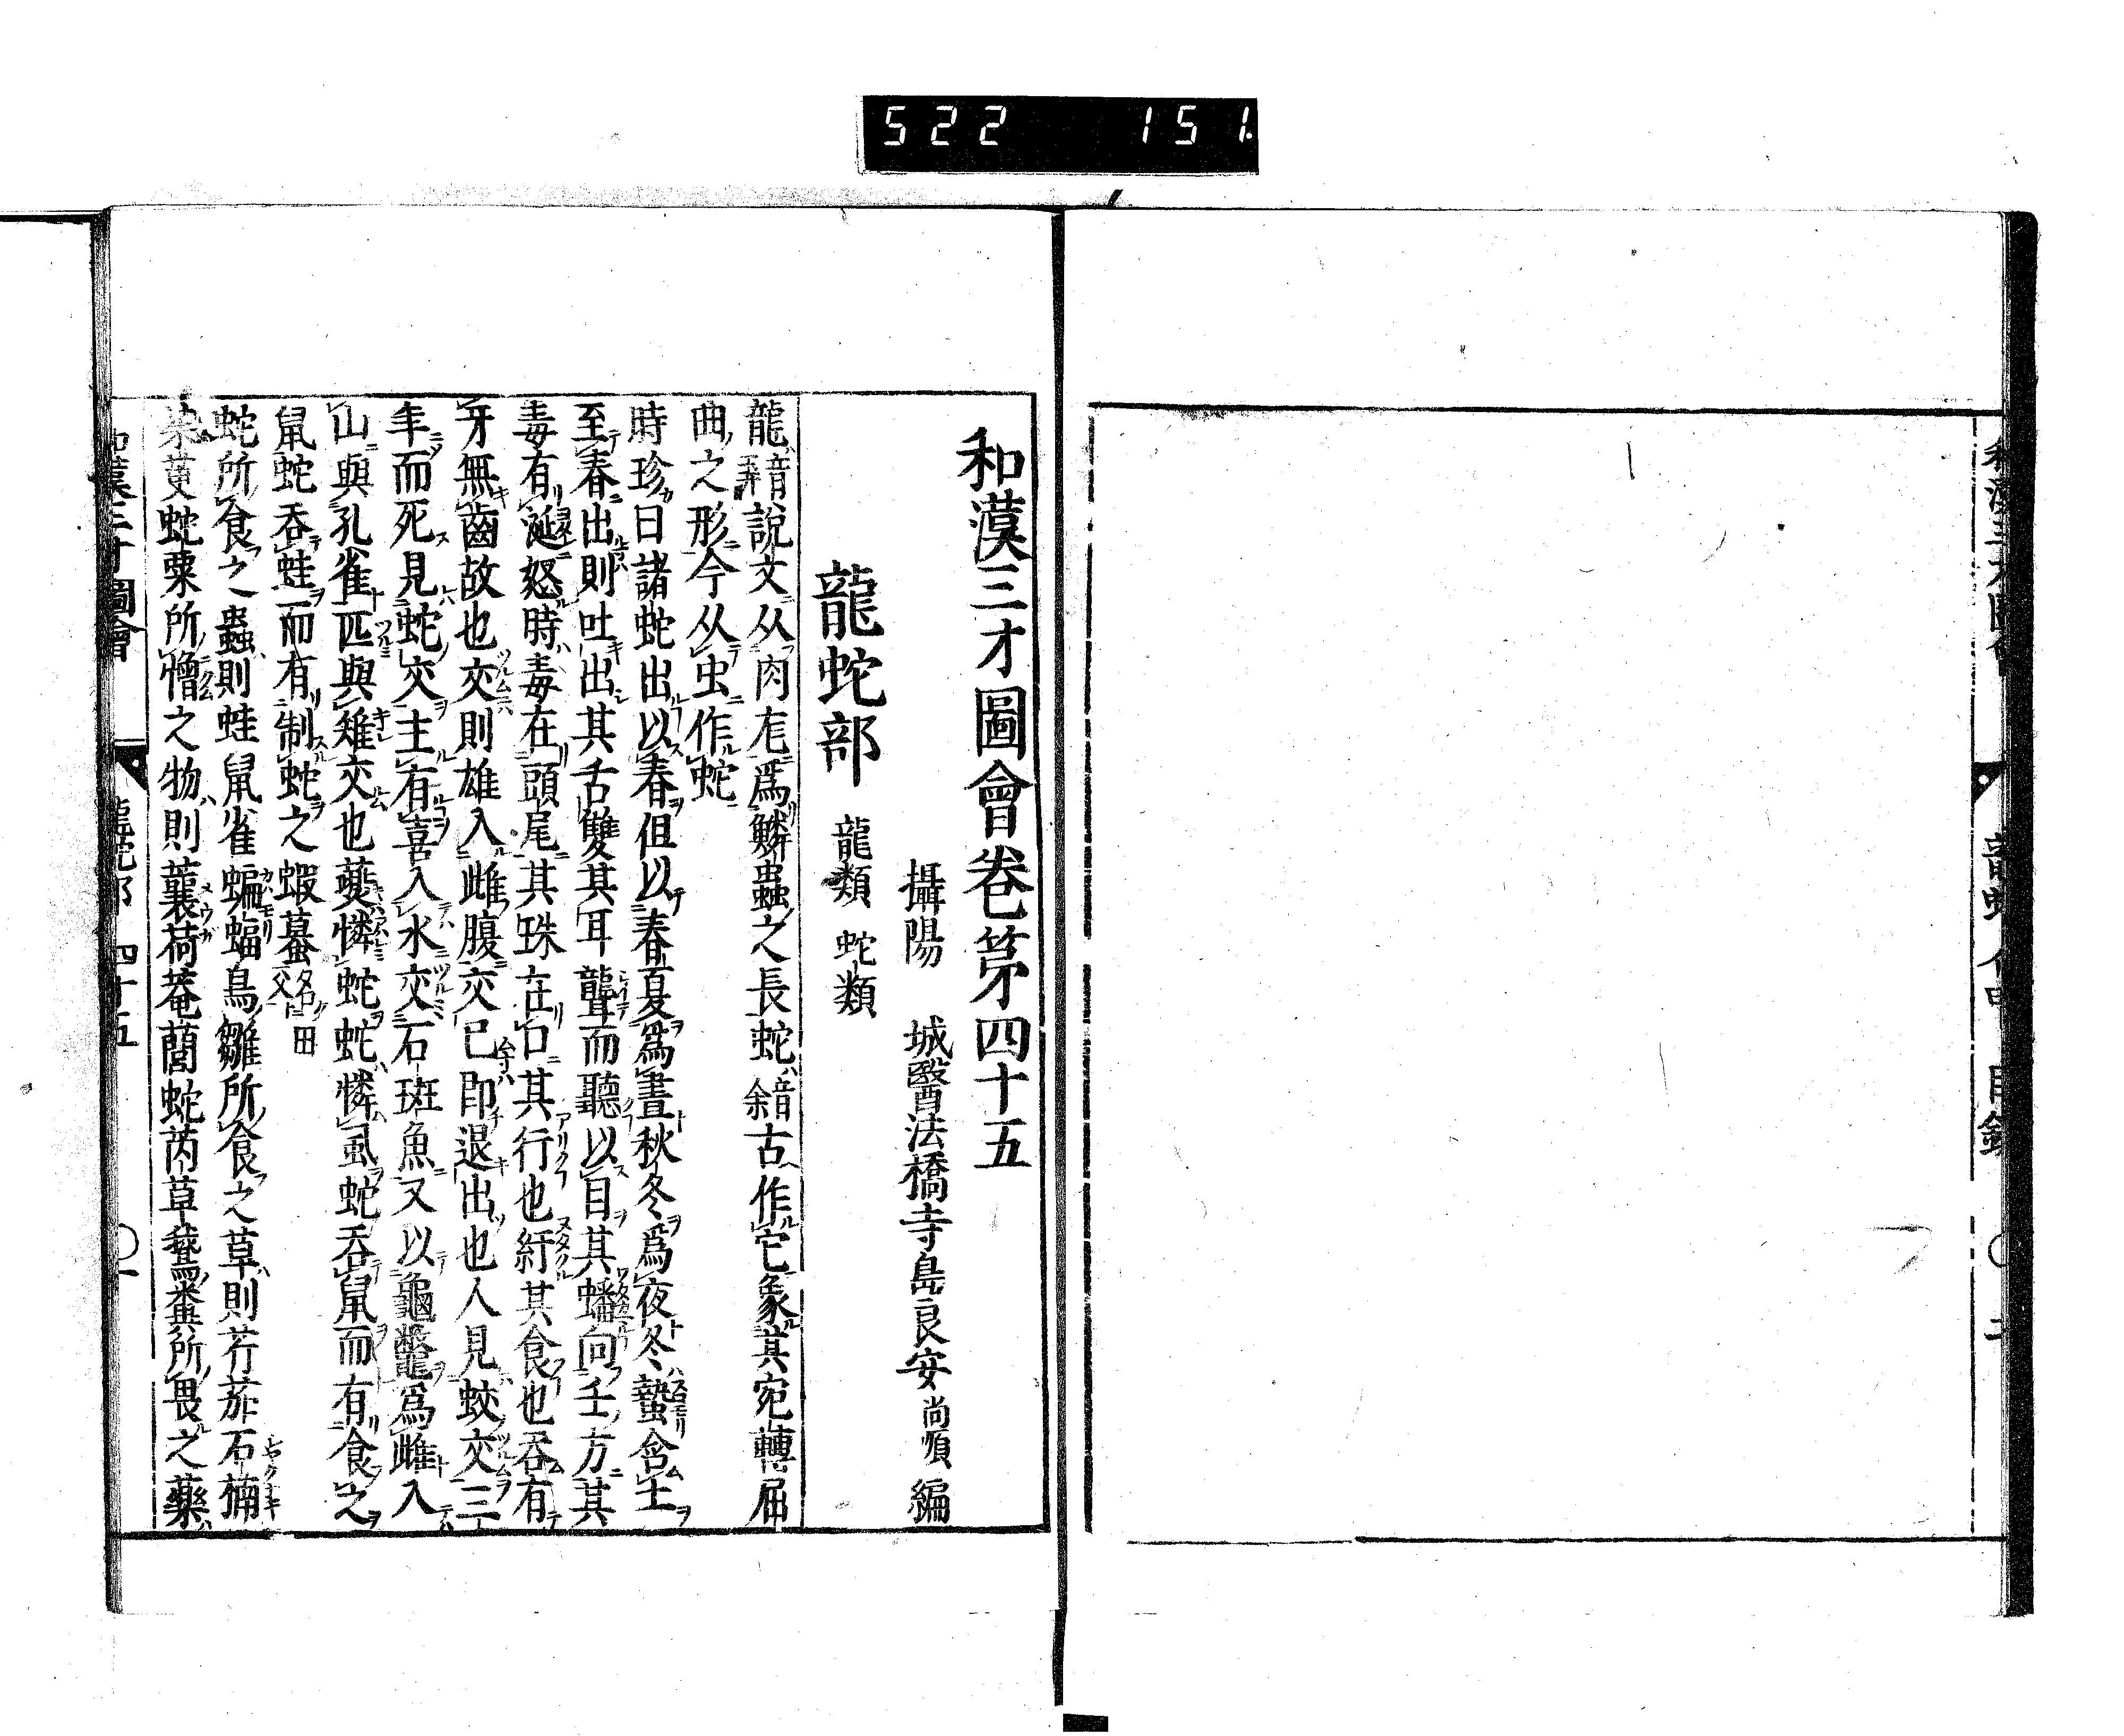 522 151
和漢三才圖會卷第四十五
攝陽 城醫法橋寺島良安尚順 編
龍蛇部 龍類 蛇類
龍音說文从肉為鱗蟲之長蛇音余古作它象其宛轉屈
曲之形今从虫作蛇
時珍曰諸蛇出以春但以春夏爲晝秋冬爲夜冬蟄含土
至春出則吐出其舌雙其耳聾而聽以目其蟠向壬方其
毒有涎怒時毒在頭尾其珠在口其行也紆其食也吞有
牙無齒故也交則雄入雌腹交已即退出也人見蛟交三
年而死見蛇交主有喜入水交石斑魚又以龜鼈爲雌入
山與孔雀匹與雉交也夔憐蛇蛇憐風蛇吞鼠而有食之
鼠蛇吞蛙而有制蛇之蝦蟇又名田父
蛇所食之蟲則蛙鼠雀蝙蝠鳥雛所食之草則芹茄石楠
茱萸蛇粟所憎之物則蘘荷菴䕡蛇芮草鵞糞所畏之藥
和漢三才圖會 龍蛇部 四十五 〇一